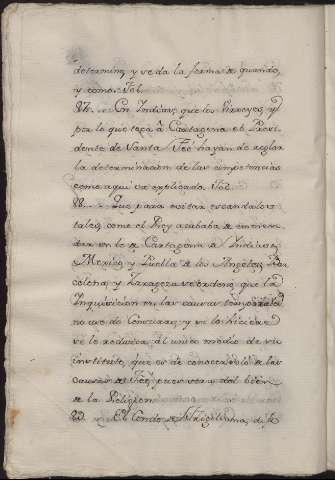 determina, y se da la forma de quando,
y como. Fol.
87. .. En Indias que los Virreyes, y
por lo que toca à Cartagena el Presi-
dente de Santa Feé hayan de reglar
la determinacion de las competencias
como aqui va explicado. Fol.
88. .. Que para evitar escandalos
tales, como el Rey acababa de
en lo de Cartagena de Indias,
Mexico, y Puebla de los Angeles, Bar-
celona, y Zaragoza se ordene, que la
Inquisicion en las causas temporales
no use de Censuras; y si lo hiciere
se le reduzca al unico medio de su
instituto, que es de conocer solo de las
causas de Feé, pues esta, y del bien
de la Religion.
89. .. El Conde de Frigiliana, dice